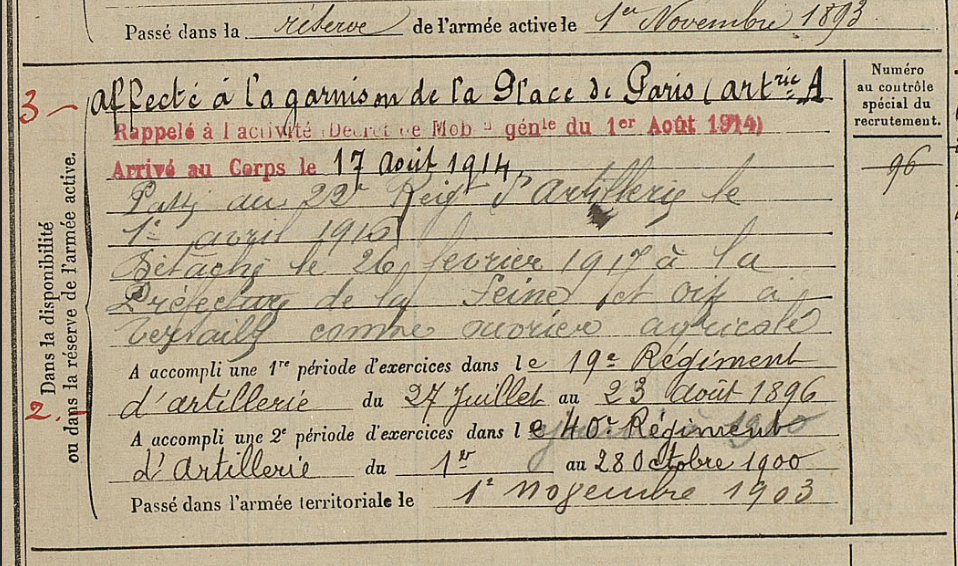 Passé dans la réserve de l'armée active le 1er Novembre 1893
3 – affecté à la garnison de la Place de Paris (artrie A
Rappelé à l'activité (Décret de Mobon génle du 1er Août 1914)
Arrivé au Corps le 17 Août 1914,
Passé au 22e Regt d'Artillerie le
1er avril 1916
Détaché le 26 février 1917 à la
Préfecture de la Seine et Oise à
Versailles comme ouvrier agricole
A accompli une 1re période d'exercices dans le 19e Régiment
d'artillerie du 27 Juillet au 23 Août 1896
A accompli une 2e période d'exercices dans le 40e Régiment
d'Artillerie du 1er au 28 Octobre 1900
Passé dans l'armée territoriale le 1er Novembre 1903
2. –
Dans la disponibilité
ou dans la réserve de l'armée active.
Numéro
au contrôle
spécial du
recrutement.
96